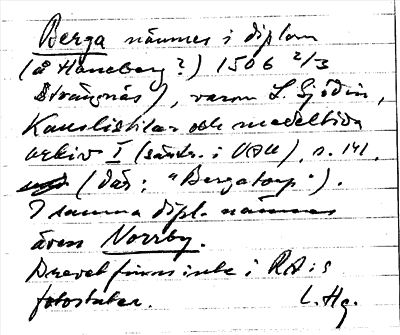 Berga nämnes i diplom
(å Haneberg?) 1506 2/3
Strängnäs), varom L. Sjödin,
Kanslistilar och medeltida
arkiv I (särtr. i UAH), s. 141.
(där: "Bergatorp").
I samma dipl. nämnes
även Norrby.
Brevet finns inte i RA:s
fotostater. L. Hg.